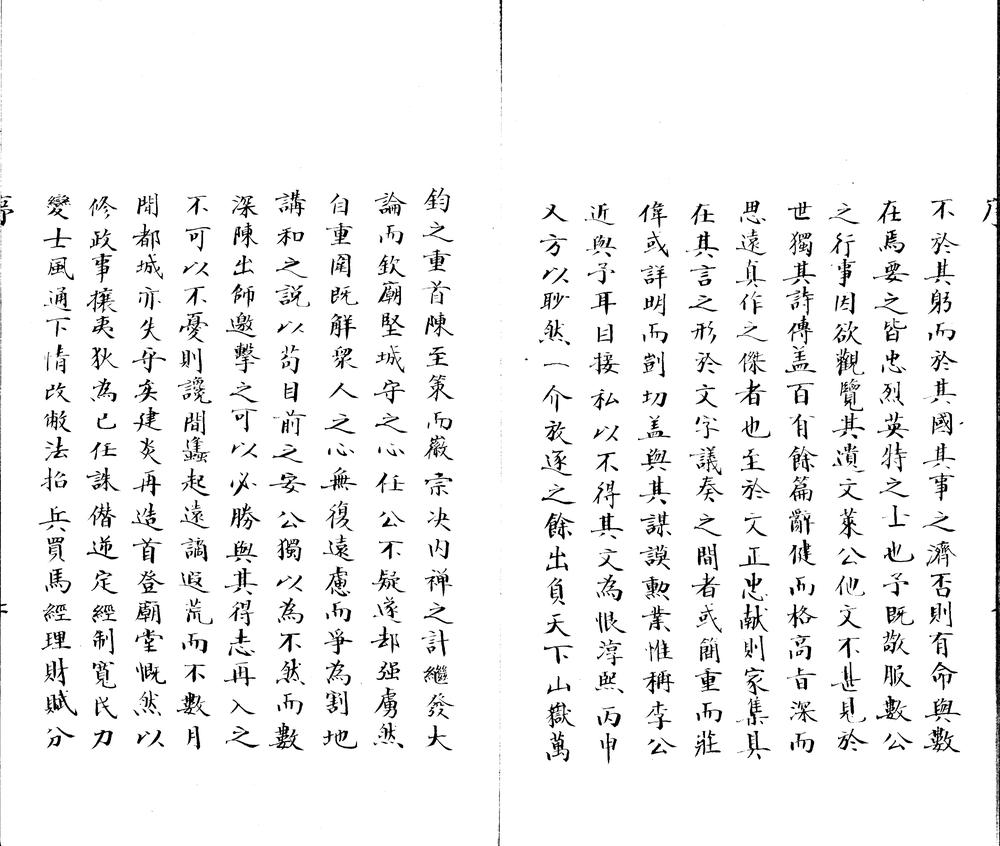 不於其躬而於其國其事之濟否則有命與數
在焉要之皆忠烈英特之士也予既敬服數公
之行事因欲觀覽其遺文萊公他文不甚見於
世獨其詩傳盖百有餘篇辭健而格高旨深而
思遠真作之傑者也至於文正忠献則家集具
在其言之形於文字議奏之間者或簡重而莊
偉或詳明而剴切盖與其謀謨勲業惟稱李公
近與予耳目接私以不得其文為恨淳熙丙申
又方以眇然一介放逐之餘出負天下山嶽萬
鈞之重首陳至策而徽宗决内禅之計繼發大
論而欽廟堅城守之心任公不疑遂却强虜然
自重圍既解衆人之心無復遠慮而爭為割地
講和之説以苟目前之安公獨以為不然而數
深陳出師邀擊之可以必勝與其得志再入之
不可以不憂則讒間蠭起遠謫遐荒而不數月
間都城亦失守矣建炎再造首登廟堂慨然以
修政事攘夷狄為己任誅僭逆定經制寛民力
變士風通下情改敝法招兵買馬經理財賦分